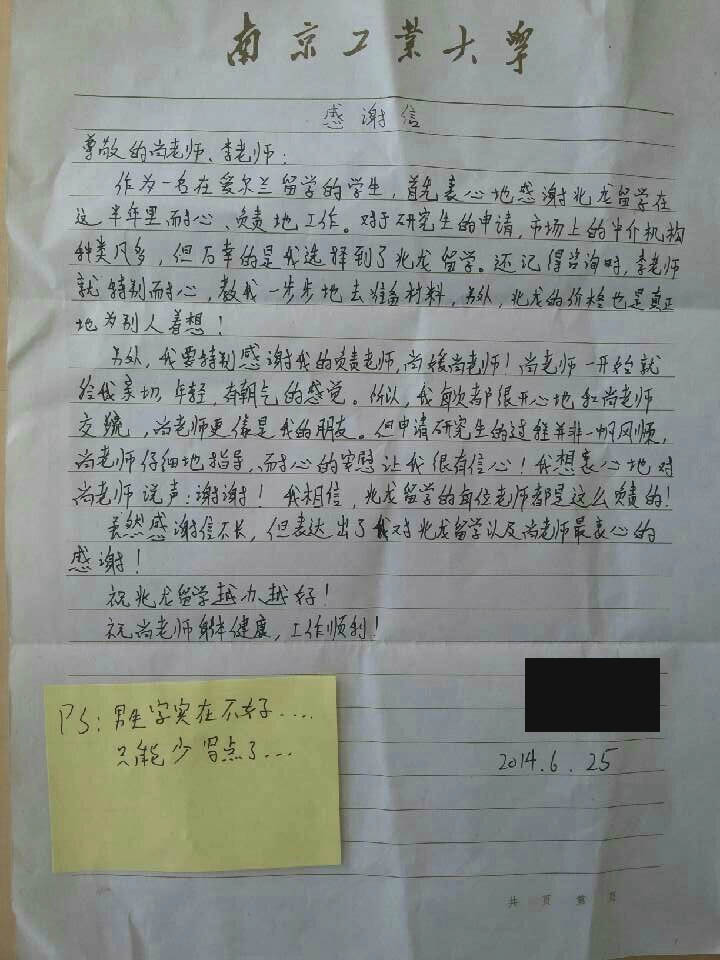 南京工业大学
感谢信
尊敬的尚老师、李老师：
作为一名在爱尔兰留学的学生，首先衷心地感谢兆龙留学在
这半年里耐心、负责地工作。对于研究生的申请，市场上的中介机构
种类凡多，但万幸的是我选择到了兆龙留学。还记得咨询时，李老师
就特别耐心，教我一步步地去准备材料，另外，兆龙的价格也是真正
地为别人着想！
另外，我要特别感谢我的负责老师，尚媛尚老师！尚老师一开始就
给我亲切，年轻，有朝气的感觉。所以，我每次都很开心地和尚老师
交流，尚老师更像是我的朋友。但申请研究生的过程并非一帆风顺，
尚老师仔细地指导，耐心的安慰让我很有信心！我想衷心地对
尚老师说声：谢谢！我相信，兆龙留学的每位老师都是这么负责的！
虽然感谢信不长，但表达出了我对兆龙留学以及尚老师最衷心的
感谢！
祝兆龙留学越办越好！
祝尚老师身体健康，工作顺利！
PS：男生字实在不好....
只能少写点了...
2014.6.25
共 页 第 页